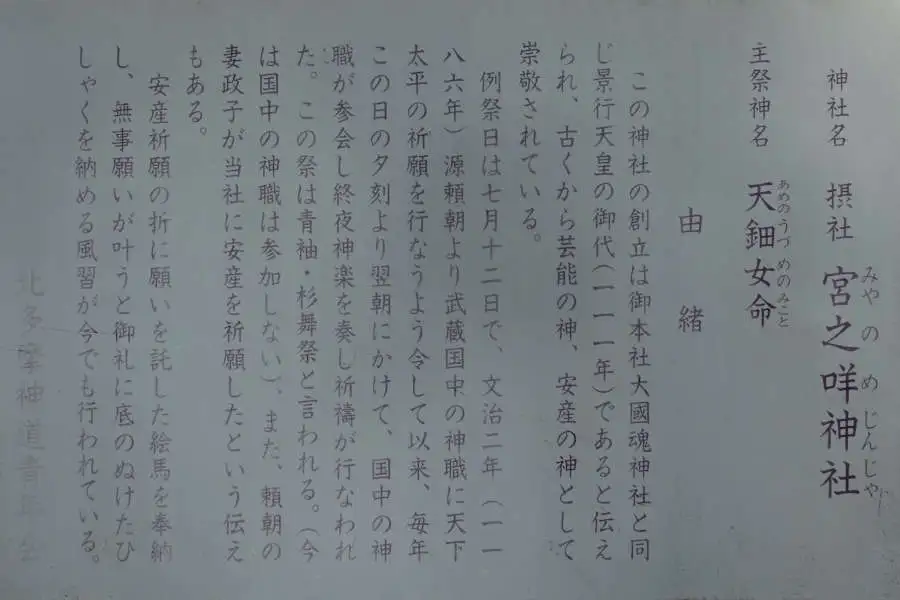 神社名 摂社 宮之咩神社
みやのめじんじゃ
主祭神名 天鈿女命
あめのうづめのみこと
由緒
この神社の創立は御本社大國魂神社と同
じ景行天皇の御代(一一一年)であると伝え
られ、古くから芸能の神、安産の神として
崇敬されている。
例祭日は七月十二日で、文治二年(一一
八六年)源頼朝より武蔵国中の神職に天下
太平の祈願を行なうよう令して以来、毎年
この日の夕刻より翌朝にかけて、国中の神
職が参会し終夜神楽を奏し祈禱が行なわれ
た。この祭は青袖・杉舞祭と言われる。(今
は国中の神職は参加しない)、また、頼朝の
妻政子が当社に安産を祈願したという伝え
もある。
安産祈願の折に願いを託した絵馬を奉納
し、無事願いが叶うと御礼に底のぬけたひ
しゃくを納める風習が今でも行われている。
北多摩神道青年会